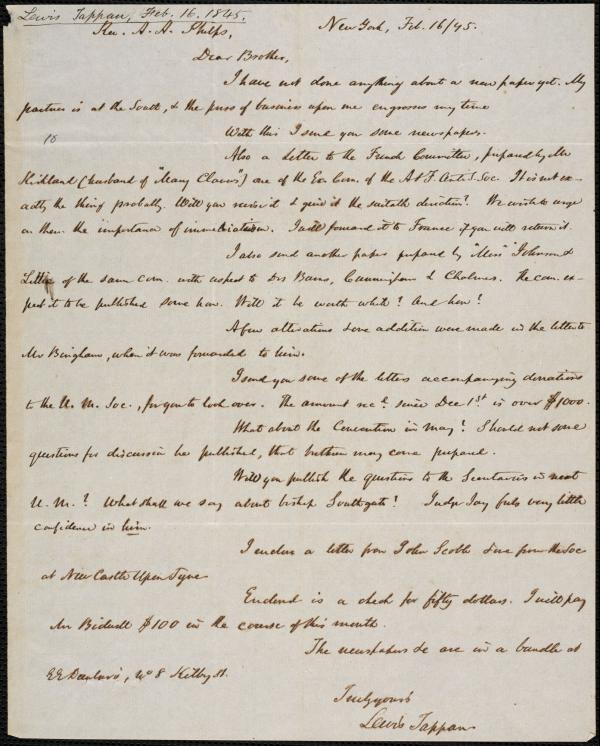 Lewis Tappan, Feb. 16. 1845.
New York, Feb. 16/45.
Rev. A. A. Phelps,
Dear Brother,
I have not done anything about a new paper yet. My
partner is at the South, & the press of business upon me engrosses my time
With this I send you some newspapers.
Also a letter to the French Committee, prepared by Mr
Kirkland (husband of "Mary Clavers") one of the Ex. Com. of the A & F. Anti S. Soc. It is not ex-
actly the thing probably. Will you revise it & give it the suitable direction? We wish to urge
on them the importance of immediatism. I will forward it to France if you will return it.
I also send another paper prepared by Mess Johnson &
of the same com. with respect to Drs Cunningham & Chalmers. The com. ex-
pect it to be published some how. Will it be worth while? And how?
A few alterations & one addition were made in the letter to
Mr Bingham, when it was forwarded to him.
I send you some of the letters accompanying donations
to the U. M. Soc., for you to look over. The amount rec'd since Dec 1st is over $1000.
What about the Convention in May? Should not some
questions for discussion be published, that brethren may come prepared.
Will you publish the questions to the Secretaries in next
U. M.? What shall we say about bishop Southgate? Judge Jay feels very little
confidence in him.
I enclose a letter from John Scoble & one from the Soc
at New Castle Upon Tyne
Enclosed is a check for fifty dollars. I will pay
Mr Bidwell $100 in the course of this month.
The newspapers &c are in a bundle at
No 8 Kilby St.
Truly yours
Lewis Tappan